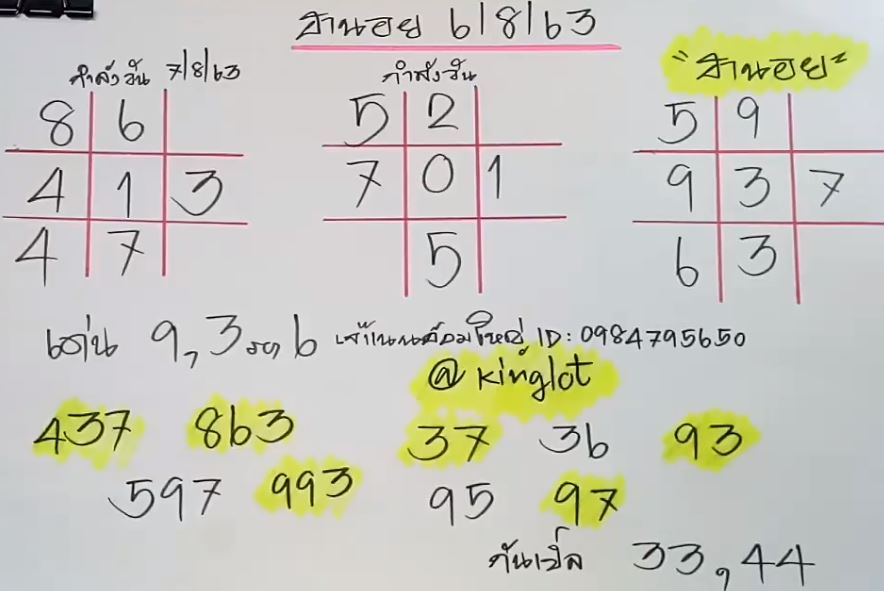 ฮานอย 6/8/63
กำลังวัน 7/8/63
8 6
4 1 3
4 7
กำลังวัน
5 2
7 0 1
5
"ฮานอย"
5 9
9 3 7
6 3
เด่น 9,3 รอง 6
ID: 0984795650
@kinglot
437 863
597 993
37 36 93
95 97
กันเบิ้ล 33,44